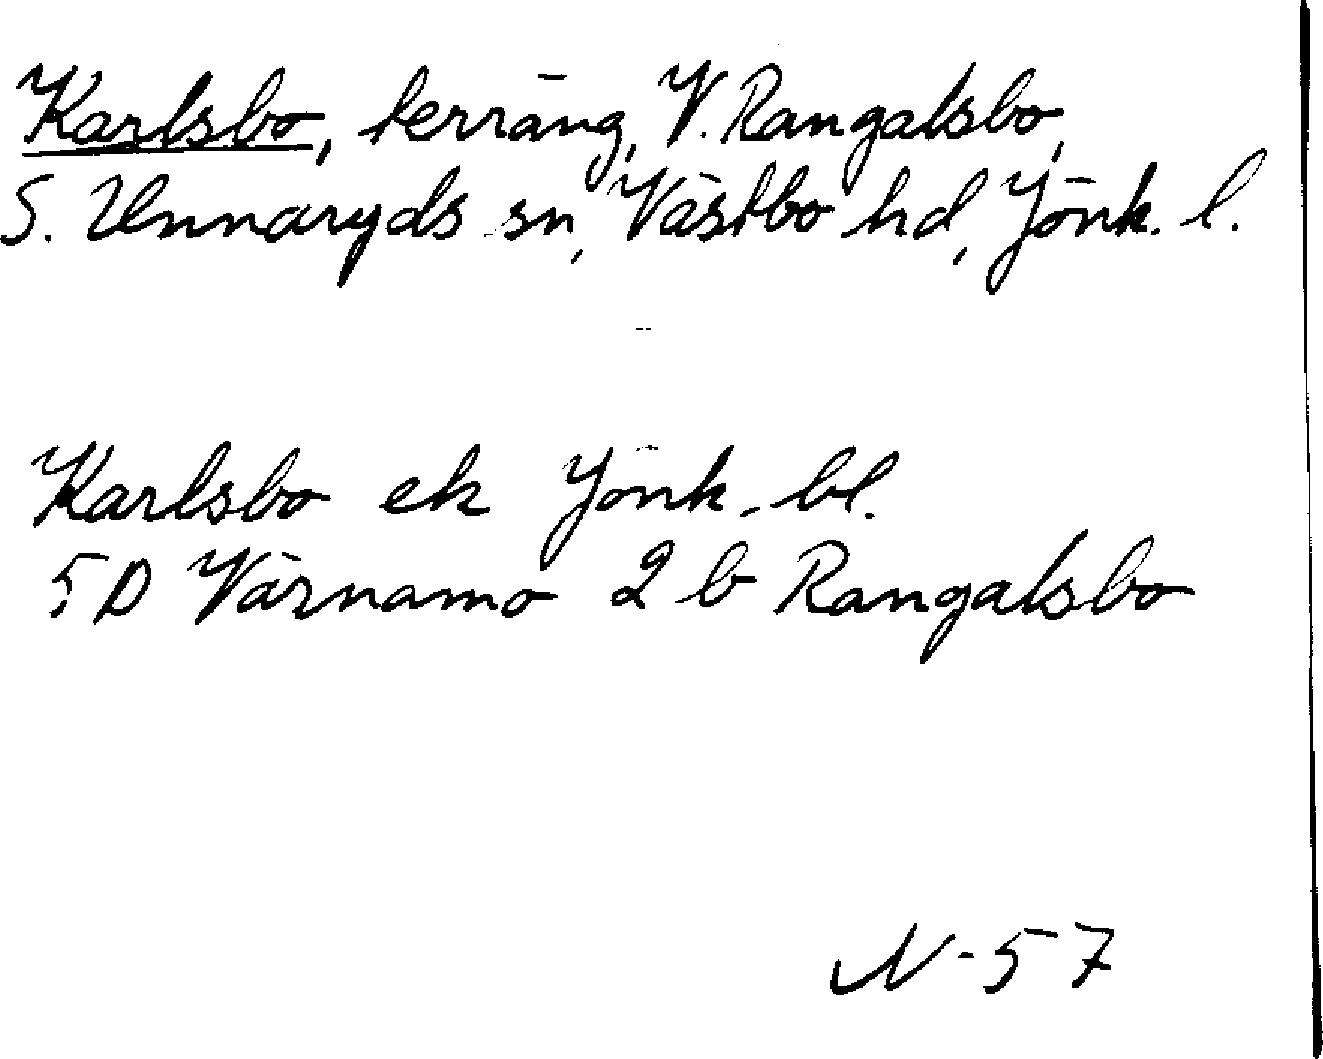 Karlsbo, terräng, V. Rangalsbo,
S. Unnaryds sn, Västbo hd, Jönk. l.
Karlsbo ek Jönk. bl.
5D Värnamo 2 b Rangalsbo
N-57